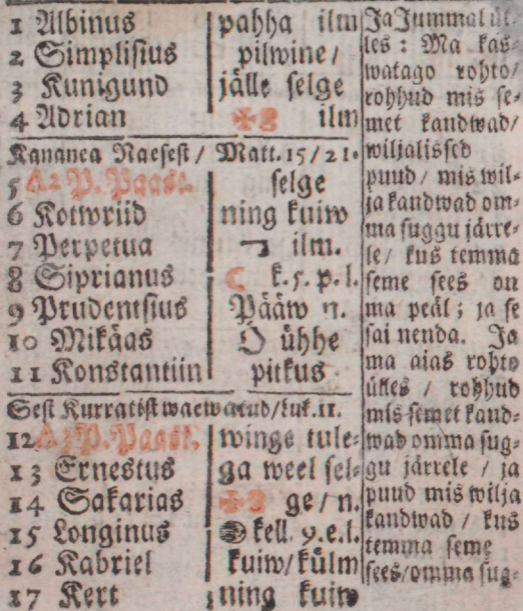 1 Albinus
2 Simplisius
3 Kunigund
4 Adrian
pahha ilm
pilwine /
jälle selge
ilm
Kananea Naesest / Matt. 15 / 21.
5 A 2 P. Paast.
6 Kotwriid
7 Perpetua
8 Siprianus
9 Prudentsius
10 Mikäas
11 Konstantiin
selge
ning kuiw
ilm.
☾ k. 5. p. l.
Pääw n.
Ö ühhe
pitkus
Sest Kurratist waewatud / Luk. 11.
12 A 3 P. Paast.
13 Ernestus
14 Sakarias
15 Longinus
16 Kabriel
17 Kert
winge tule-
ga weel sel-
ge / n.
kell. 9. e. l.
kuiw / külm
ning kuiw
Ja Jummal üt-
les : Ma kas-
watago rohto /
rohhud mis se-
met kandwad /
wiljalissed
puud / mis wil-
ja kandwad om-
ma suggu järre-
le / kus temma
seme sees on
ma peäl ; ja se
sai nenda. Ja
ma aias rohto
ülles / rohhud
mis semet kand-
wad omma sug-
gu järrele / ja
puud mis wilja
kandwad / kus
temma seme
sees / omma sug-